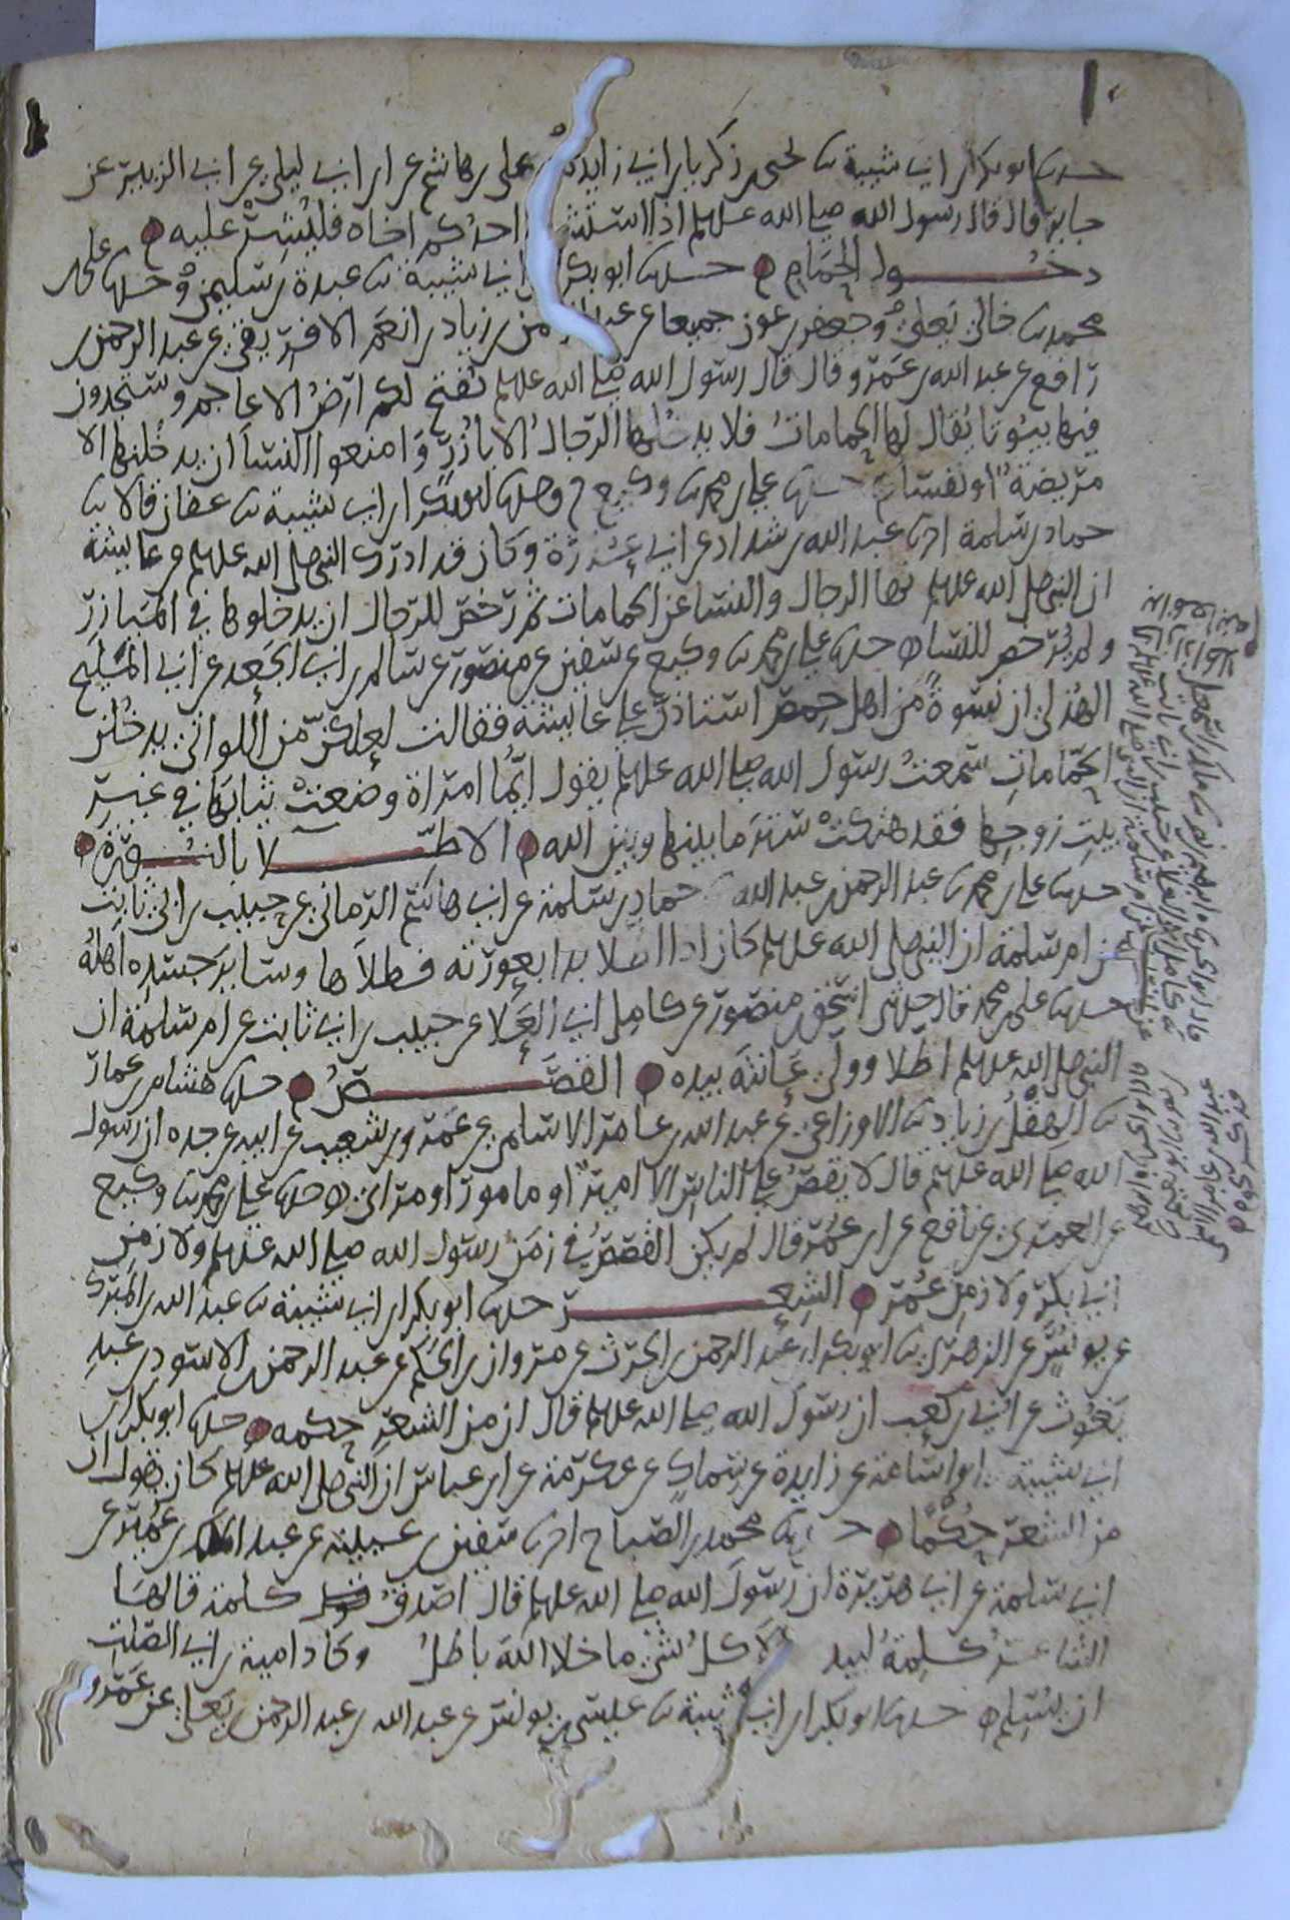 حدثنا ابو بكر بن ابي شيبة ثنا يحيى بن زكريا بن ابي زايدة وعلي بن هاشم عن ابن ابي ليلى عن ابي الزبير عن
جابر قال قال رسول الله صلى الله عليه وسلم اذا استشار احدكم اخاه فليشر عليه
دخول الحمام حدثنا ابو بكر بن ابي شيبة ثنا عبدة بن سليمن ح وحدثنا علي بن
محمد ثنا خالي يعلى وجعفر بن عون جميعا عن عبد الرحمن بن زياد بن انعم الافريقي عن عبد الرحمن بن
رافع عن عبد الله بن عمرو قال قال رسول الله صلى الله عليه وسلم تفتح لكم ارض الاعاجم وستجدون
فيها بيوتا يقال لها الحمامات فلا يدخلها الرجال الا بازر وامنعوا النسا ان يدخلنها الا
مريضة او نفسا حدثنا علي بن محمد ثنا وكيع ح وحدثنا ابو بكر بن ابي شيبة ثنا عفان قالا ثنا
حماد بن سلمة انا عبد الله بن شداد عن ابي عذرة وكان قد ادرك النبي صلى الله عليه وسلم عن عايشة
ان النبي صلى الله عليه وسلم نها الرجال والنسا عن الحمامات ثم رخص للرجال ان يدخلوها في الميازر
ولم يرخص للنسا حدثنا علي بن محمد ثنا وكيع عن سفين عن منصور عن سالم بن ابي الجعد عن ابي المليح
الهذلي ان نسوة من اهل حمص استاذن على عايشة فقالت لعلكن من اللواتي يدخلن
الحمامات سمعت رسول الله صلى الله عليه وسلم يقول ايما امراة وضعت ثيابها في غير
بيت زوجها فقد هتكت ستر ما بينها وبين الله الاطلا بالنورة
حدثنا علي بن محمد ثنا عبد الرحمن بن عبد الله حماد بن سلمة عن ابي هاشم الرماني عن حبيب بن ابي ثابت
عن ام سلمة ان النبي صلى الله عليه وسلم كان اذا اطلا بدا بعورته فطلاها وساير جسده اهله
حدثنا علي بن محمد قال حدثني اسحق بن منصور عن كامل ابي العلا عن حبيب بن ابي ثابت عن ام سلمة ان
النبي صلى الله عليه وسلم اطلا وولي عانته بيده القصص حدثنا هشام بن عمار
ثنا الهقل بن زياد ثنا الاوزاعي عن عبد الله بن عامر الاسلمي عن عمرو بن شعيب عن ابيه عن جده ان رسول
الله صلى الله عليه وسلم قال لا يقص على الناس الا امير او مامور او مراي حدثنا علي بن محمد ثنا وكيع
عن العمري عن نافع عن ابن عمر قال لم يكن القصص في زمن رسول الله صلى الله عليه وسلم ولا زمن
ابي بكر ولا زمن عمر الشعر حدثنا ابو بكر بن ابي شيبة ثنا عبد الله بن المبرك
عن يونس عن الزهري ثنا ابو بكر بن عبد الرحمن بن الحرث عن مروان بن الحكم عن عبد الرحمن بن الاسود بن عبد
يغوث عن ابي بن كعب ان رسول الله صلى الله عليه وسلم قال ان من الشعر حكمه حدثنا ابو بكر بن
ابي شيبة ابو اسامة عن زايدة عن سماك عن عكرمة عن ابن عباس ان النبي صلى الله عليه وسلم كان يقول ان
من الشعر حكما حدثنا محمد بن الصباح انا سفين بن عيينة عن عبد الملك بن عمير عن
ابي سلمة عن ابي هريرة ان رسول الله صلى الله عليه وسلم قال اصدق كلمة قالها
الشاعر كلمة لبيد الا كل شي ما خلا الله باطل وكاد امية بن ابي الصلت
ان يسلم حدثنا ابو بكر بن ابي شيبة ثنا عيسى بن يونس عن عبد الله بن عبد الرحمن بن يعلى عن عمرو